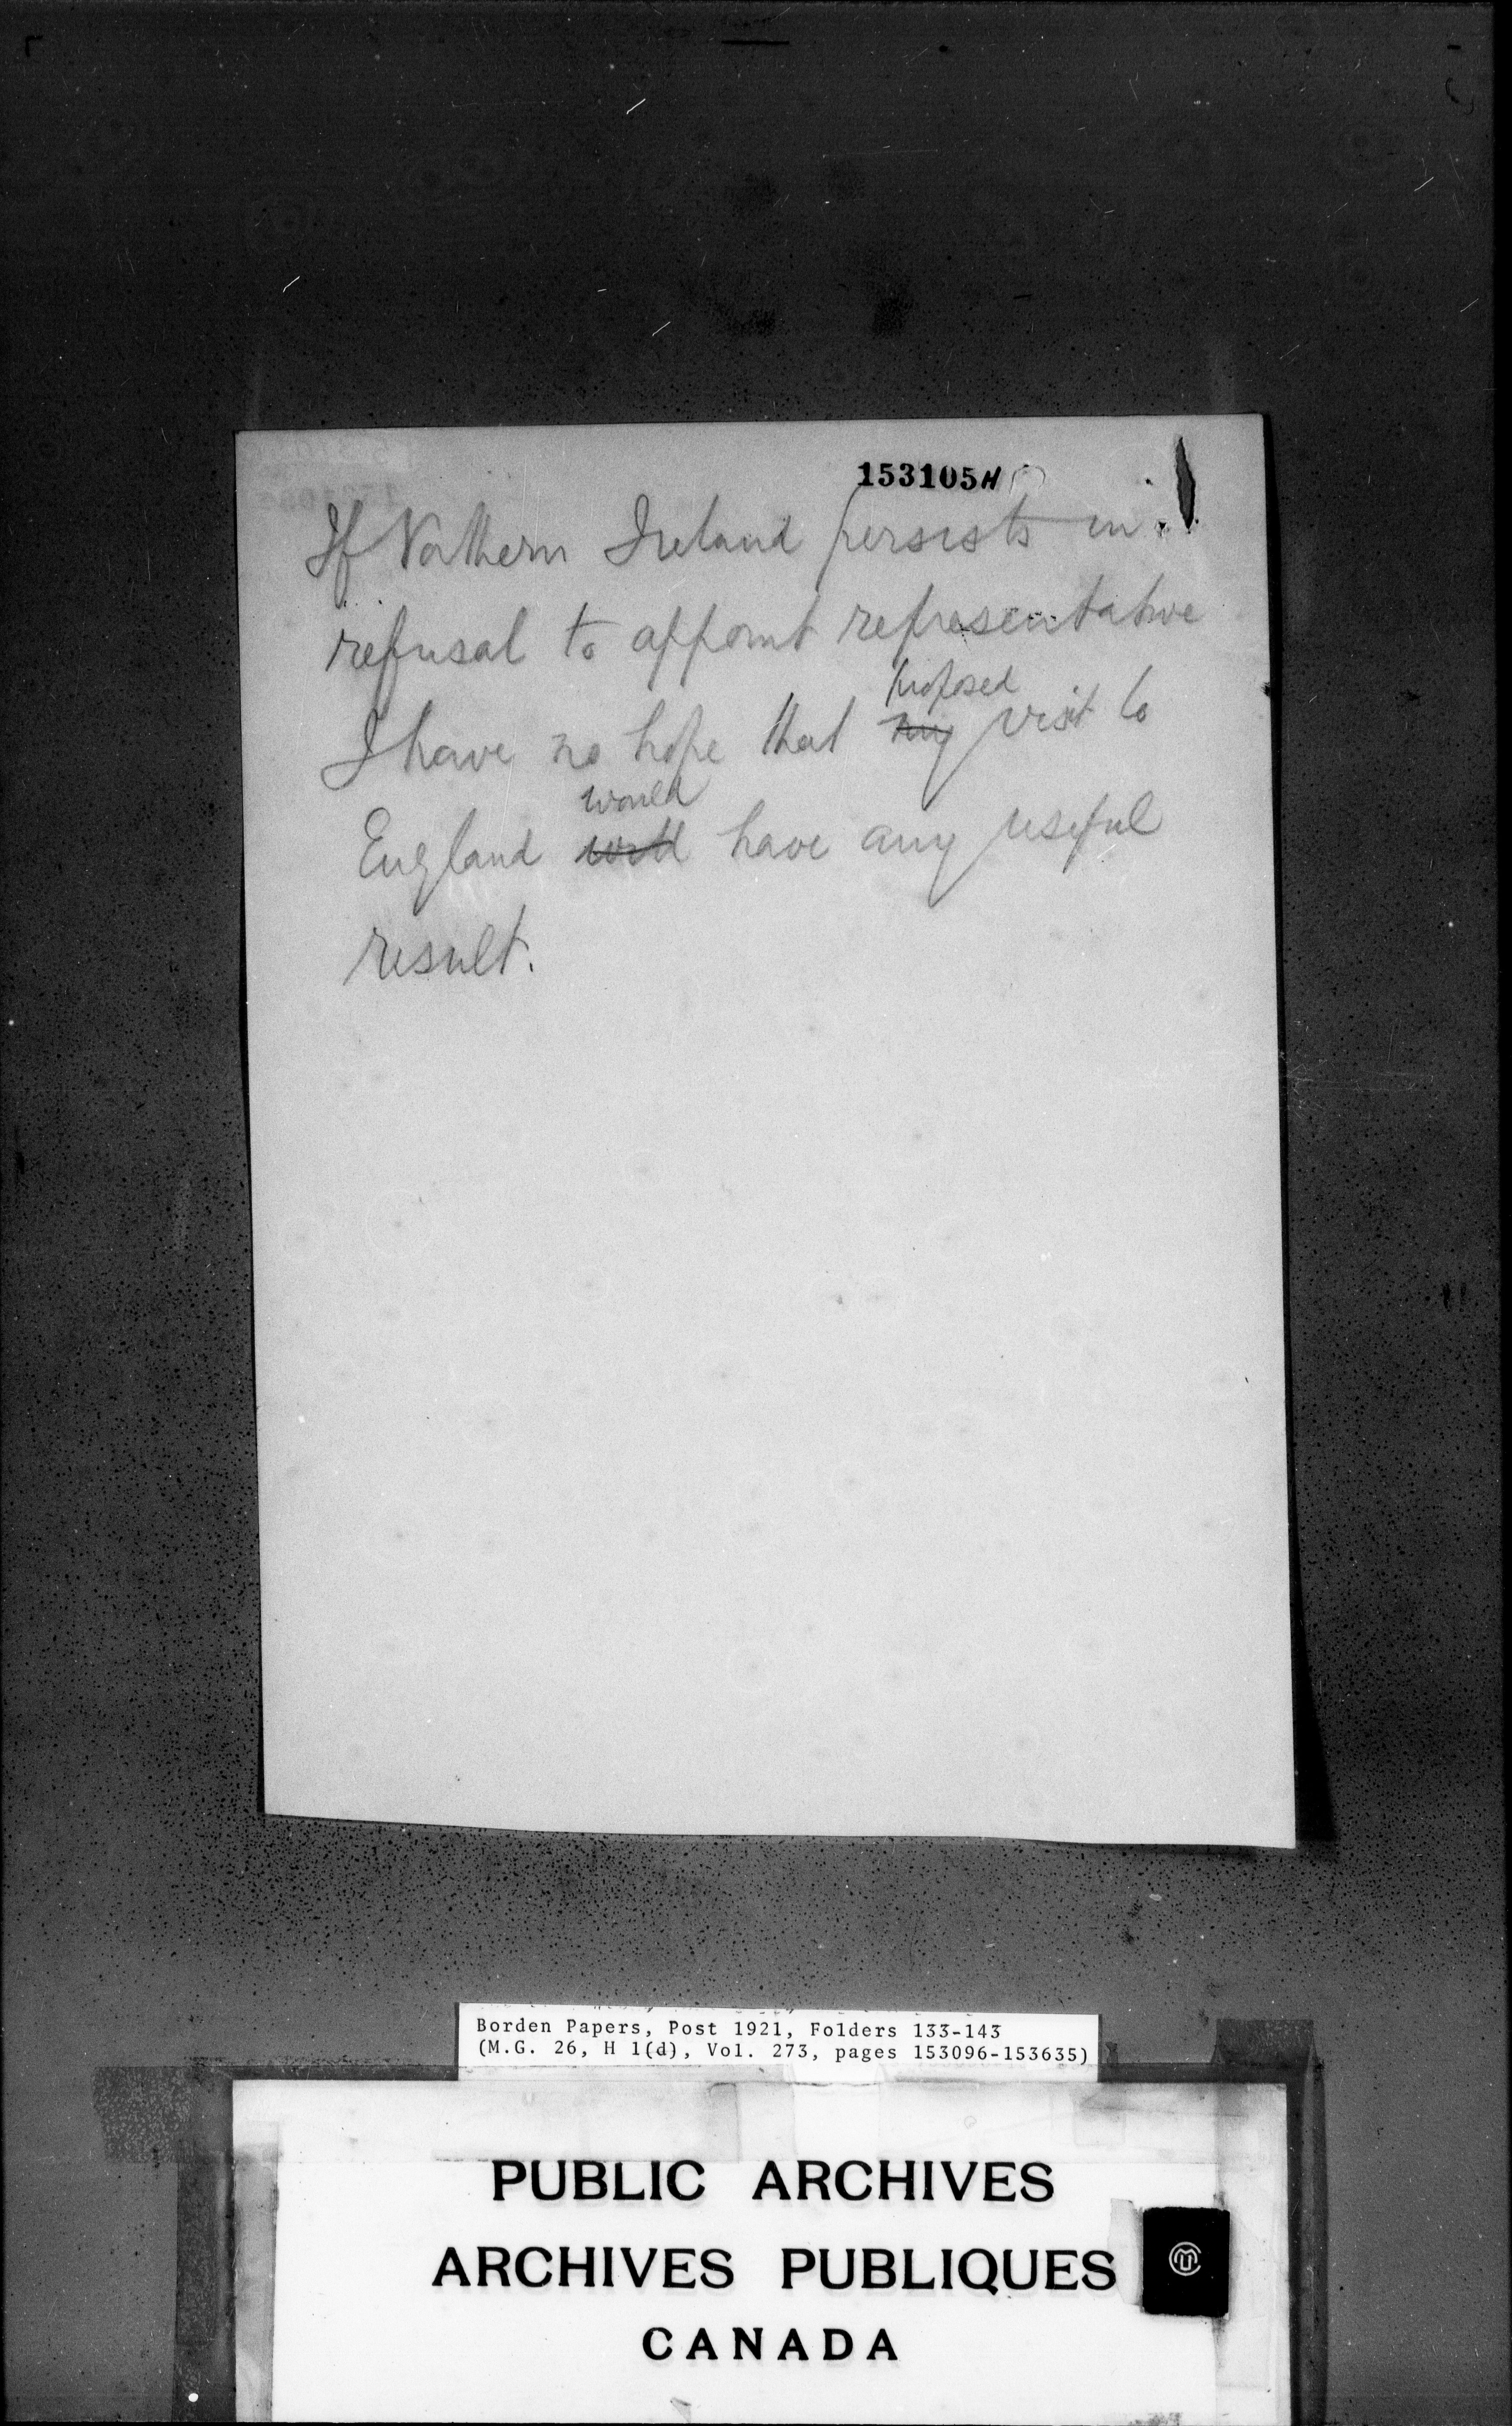 153105H
If Northern Ireland persists in
refusal to appoint representative
proposed
I have no hope that my visit to
would
England will have any useful
result.
Borden Papers, Post 1921, Folders 133-143
(M.G. 26, H 1(d), Vol. 273, pages 153096-153635)
PUBLIC ARCHIVES
ARCHIVES PUBLIQUES
CANADA